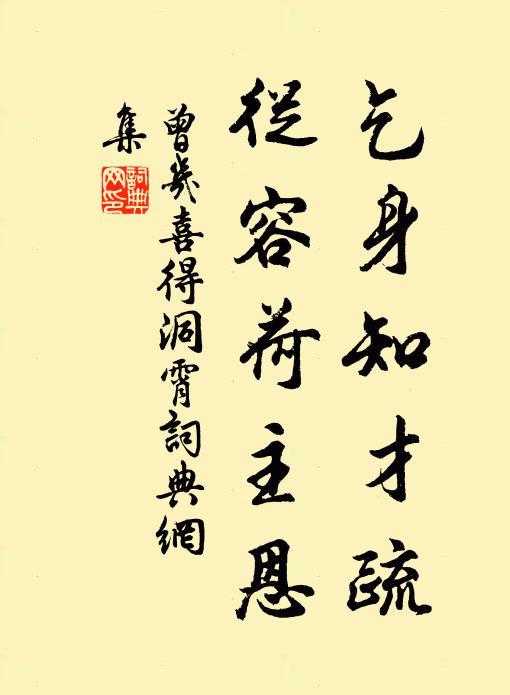 乞身知才疏
從容荷主恩
曾幾喜得洞霄詞典網
集
詞典网印